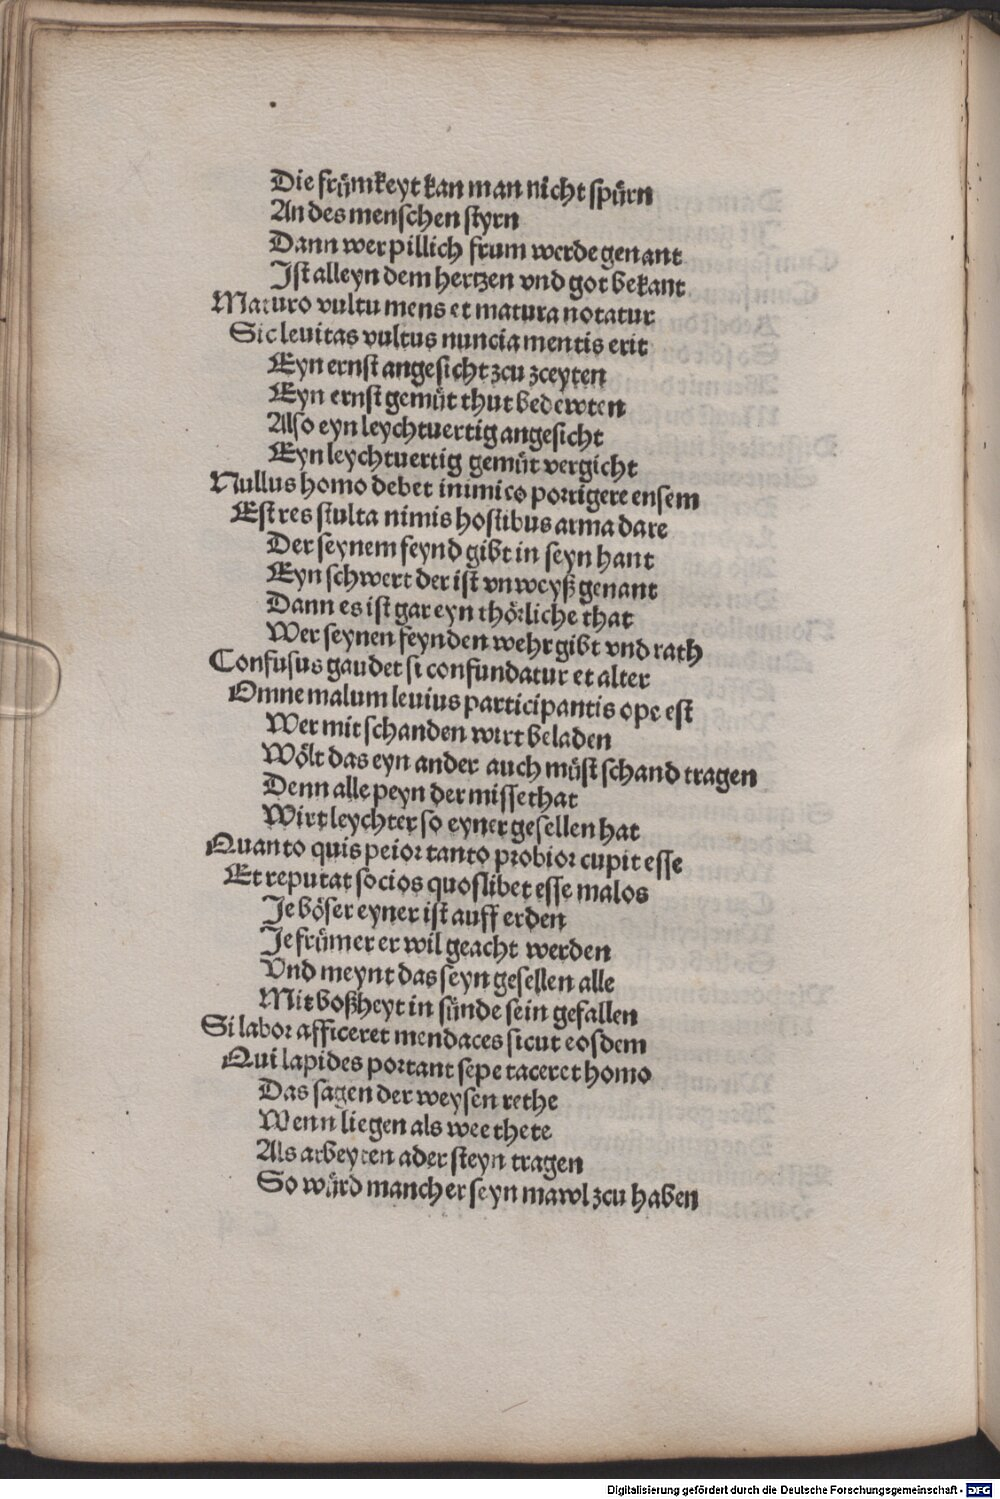 Die frümkeyt kan man nicht spürn
An des menschen styrn
Dann wer pillich frum werde genant
Ist alleyn dem hertzen vnd got bekant
Maturo vultu mens et matura notatur
Sic leuitas vultus nuncia mentis erit
Eyn ernst angesicht zcu zceyten
Eyn ernst gemüt thut bedewten
Also eyn leychtuertig angesicht
Eyn leychtuertig gemüt vergicht
Nullus homo debet inimico porrigere ensem
Est res stulta nimis hostibus arma dare
Der seynem feynd gibt in seyn hant
Eyn schwert der ist vnweyß genant
Dann es ist gar eyn thörliche that
Wer seynen feynden wehr gibt vnd rath
Confusus gaudet si confundatur et alter
Omne malum leuius participantis ope est
Wer mit schanden wirt beladen
Wölt das eyn ander auch müst schand tragen
Denn alle peyn der missethat
Wirt leychter so eyner gesellen hat
Quanto quis peior tanto probior cupit esse
Et reputat socios quoslibet esse malos
Je böser eyner ist auff erden
Je frümer er wil geacht werden
Vnd meynt das seyn gesellen alle
Mit boßheyt in sünde sein gefallen
Si labor afficeret mendaces sicut eosdem
Qui lapides portant sepe taceret homo
Das sagen der weysen rethe
Wenn liegen als wee thete
Als arbeyten ader steyn tragen
So würd mancher seyn mawl zcu haben
Digitalisierung gefördert durch die Deutsche Forschungsgemeinschaft - DFG